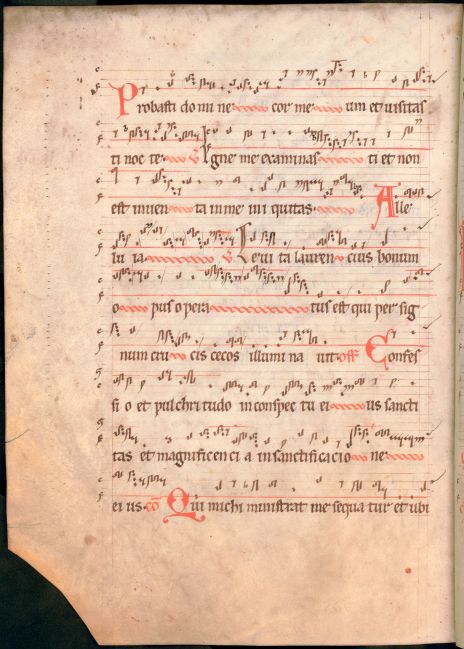 Probasti do mi ne cor me um et visitas
ti noc te ℣ Igne me examinas ti et non
est inven ta in me ini quitas Alle
lu ia ℣ Levi ta lauren cius bonum
o pus opera tus est qui per sig
num cru cis cecos illumi na vit off Confes
si o et pulchri tudo in conspec tu ei us sancti
tas et magnificen ci a in sanctificacio ne
ei us cō Qui michi ministrat me sequa tur et ubi